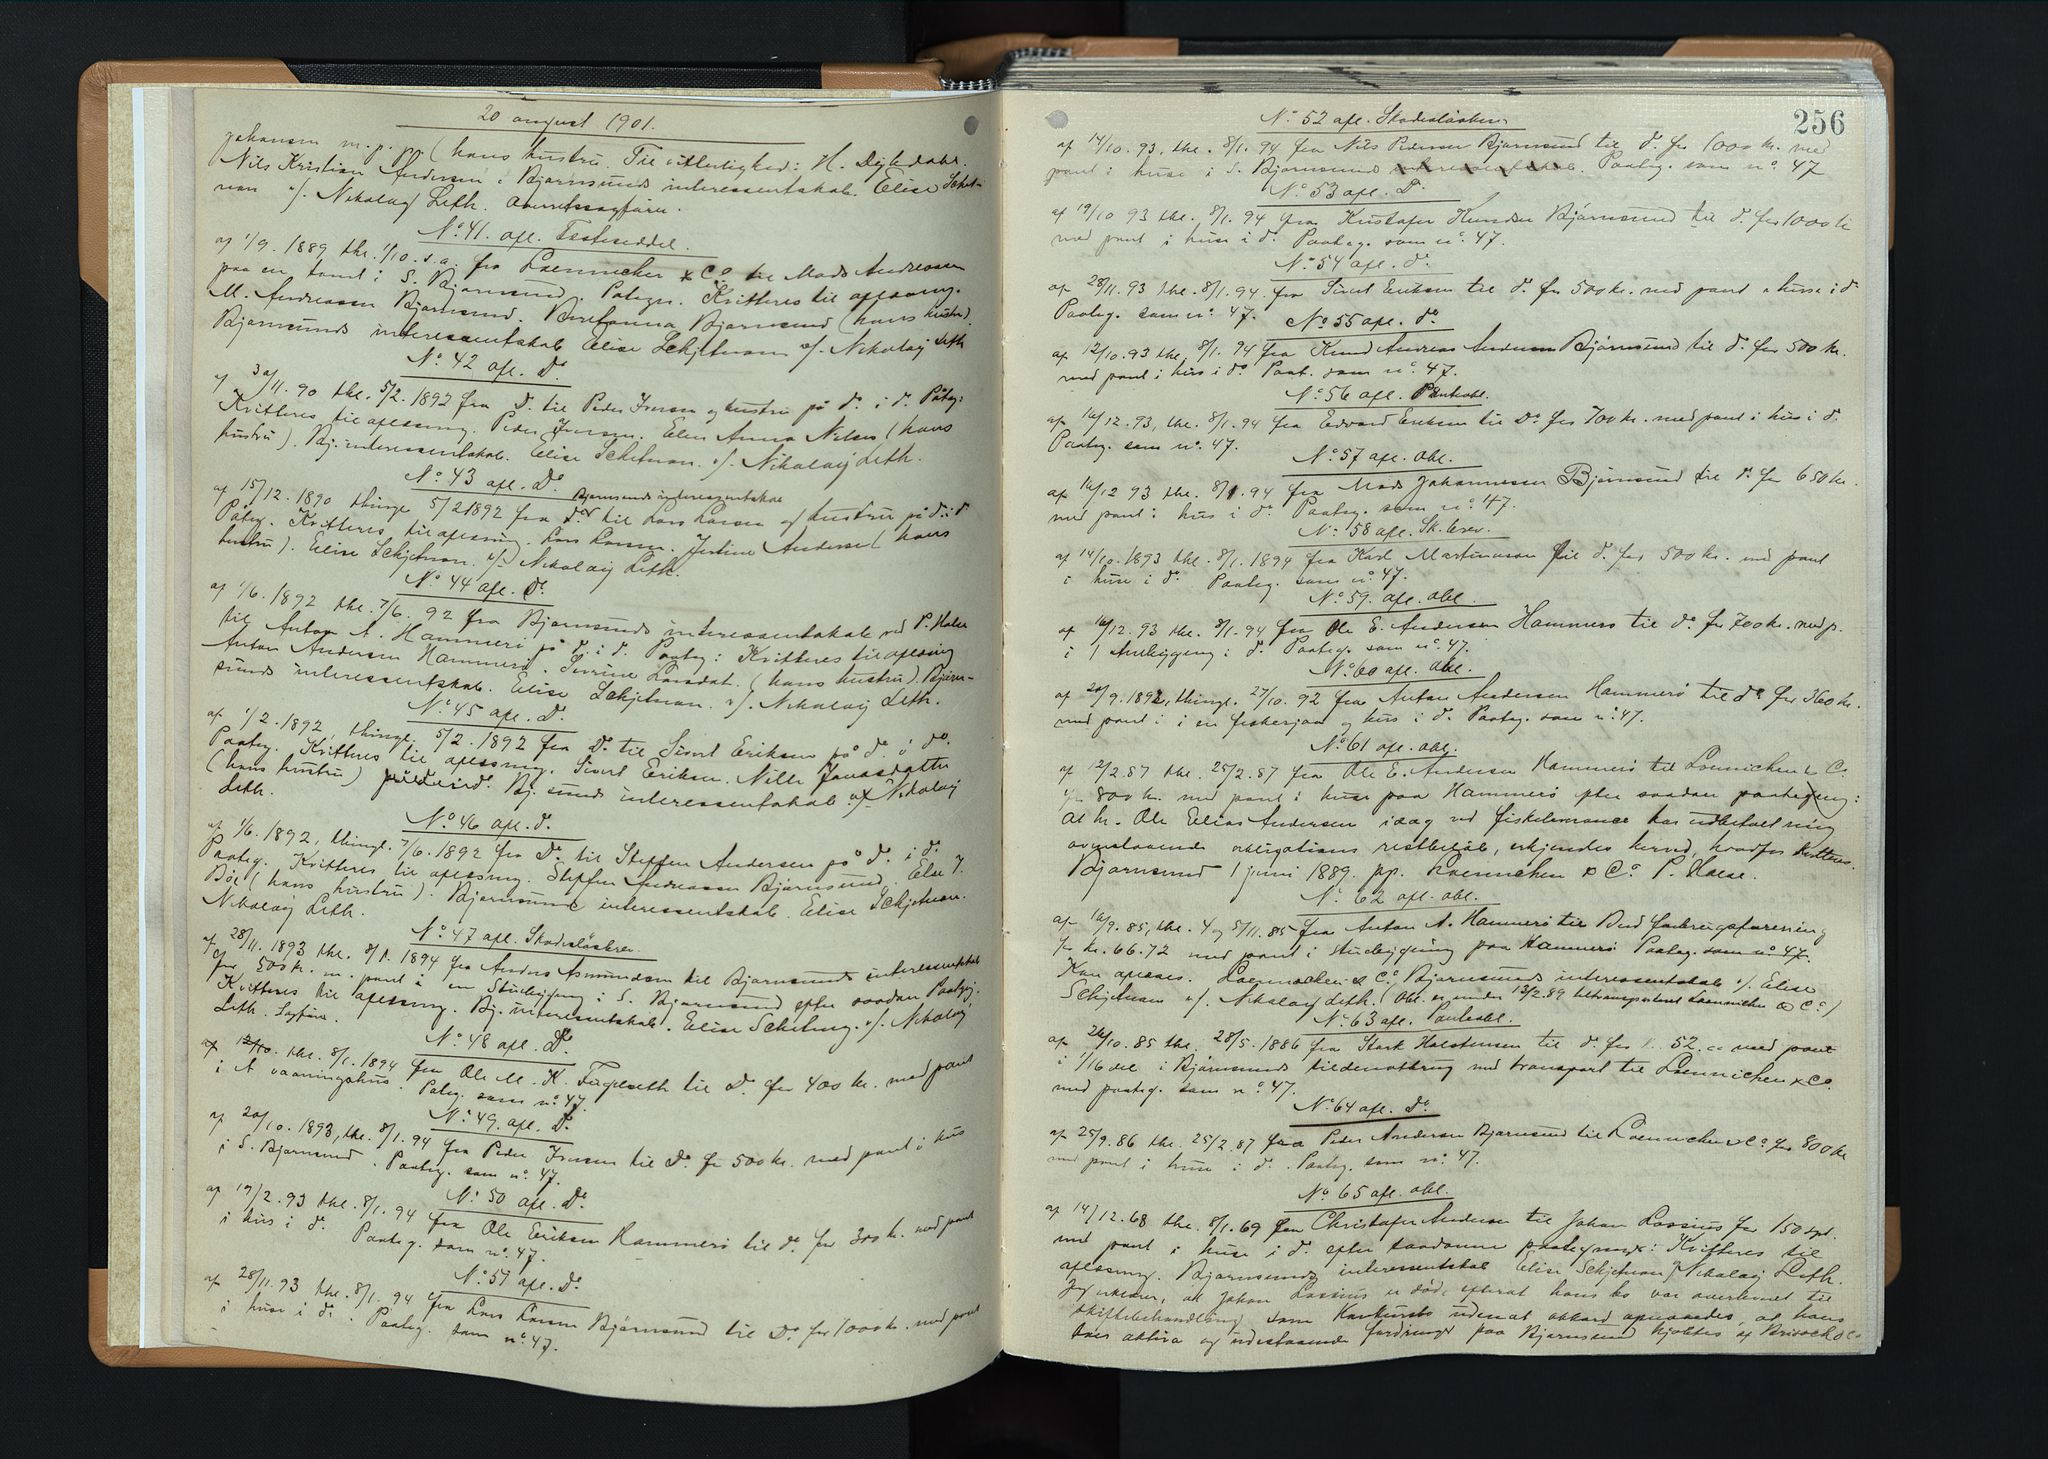 20 august 1901.
Johansen m.p. (hans hustru. Til vitterlighed: H. Dyledahl.
Nils Kristian Andersen. Bjørnsunds interessentskab. Elise Schet-
nan v/. Nikolay Leth. Overretssagfører.
No 41. afl. Festeseddel.
af 1/9. 1889 thl. 1/10. s.a. fra Loennichen & Co til Mads Andreassen
paa en tomt i S. Bjørnsund. Pategn. Kvitteres til aflesning.
M. Andreassen Bjørnsund. Bjørnsund (hans hustru)
Bjørnsunds interessentskab Elise Schjetnan v/. Nikolay Leth
No 42 afl. Do
af 30/11. 90 thl. 5/2. 1892 fra Do. til Peder Iversen og hustru på do. i do. Påteg:
Kvitteres til aflesning. Peder Iversen. Elen Anna Nilsen (hans
hustru). Bj. interessentskab. Elise Schetnan. v/. Nikolaij Leth.
No 43 afl. Do
Bjørnsunds interessentskab
af 15/12. 1890 thingl. 5/2 1892 fra do. til Lars Larsen og hustru på do. i do
Påteg. Kvitteres til aflesning. Lars Larsen. Jertine Andersd. (hans
hustru). Elise Schjetnan. v/. Nikolaij Leth.
No 44 afl. Do.
af 1/6. 1892 thl. 7/6. 92 fra Bjørnsunds interessentskab ved P. Holse
til Anton A. Hammerö på do. i do. Paateg: Kvitteres til aflesning
Anton Andersen Hammerö. Larsdat. (hans hustru). Bjørn-
sunds interessentskab. Elise Schjetnan. v/. Nikolaij Leth.
No 45 afl. Do.
af 1/2. 1892, thingl. 5/2. 1892 fra Do. til Sivert Eriksen på do. i do.
Paateg. Kvitteres til aflesning. Sivert Eriksen. Nille Jonasdatter
(hans hustru) Bj. sunds interessentskab v/ Nikolaij
Leth.
No 46 afl. do.
af 1/6. 1892, thingl. 7/6. 1892 fra Do. til Steffen Andersen på do. i do.
Paateg. Kvitteres til aflesning. Steffen Andreassen Bjørnsund. Else J.
Böe (hans hustru). Bjørnsund interessentskab. Elise Schjetnan.
Nikolaij Leth.
No 47 afl. Skadesløsbrev
af 28/11. 1893 thl. 8/1. 1894 fra Anders Asmundsen til Bjørnsunds interessentskab
for 500 kr. m. pant i en Stuebygning i S. Bjørnsund efter saadan Paategn.
Kvitteres til aflesning. Bj. interessentskab. Elise Schetnan. v/. Nikolaij
Leth. Sagfører.
No 48 afl. Do.
af 12/10. thl. 8/1. 1894 fra Ole M. K. Fuglseth til Do. for 400 kr. med pant
i 1 vaaningshus. Pateg. som no. 47.
No 49. afl. Do.
af 20/10. 1893, thl. 8/1. 94 fra Peder Iversen til Do. for 500 kr. med pant i hus
i S. Bjørnsund. Paateg. som no. 47.
No 50 afl. Do.
af 19/2. 93 thl. 8/1. 94 fra Ole Eriksen Hammerö til do. for 300 kr. med pant
i hus i do. Paateg. som no. 47.
No. 51 afl. Do.
af 28/11. 93 thl. 8/1. 94 fra Lars Larsen Bjørnsund til Do. for 1000 kr. med pant
i huse i do. Paateg. som no. 47.
256
No 52 afl. Skadesløsbrev
af 14/10. 93, thl. 8/1. 94 fra Nils Pedersen Bjørnsund til do. for 1000 kr. med
pant i huse i S. Bjørnsund interessentskab. Paateg. som no. 47
No 53 afl. Do.
af 19/10 93 thl. 8/1. 94 fra Kristofer Knudsen Bjørnsund til do. for 1000 kr
med pant i huse i do. Paateg. som no. 47.
No 54 afl. do.
af 28/11. 93 thl. 8/1. 94. fra Sivert Eriksen til do. for 500 kr. med pant i huse i do.
Paateg. som no. 47.
No 55 afl. do.
af 12/10. 93 thl. 8/1. 94 fra Knud Andreas Andersen Bjørnsund til do. for 500 kr.
med pant i hus i do. Paat. som no. 47.
No 56 afl. Panteobl.
af 16/12. 93, thl. 8/1. 94 fra Edvard Eriksen til Do for 700 kr. med pant i hus i do.
Paateg. som no. 47.
No 57 afl. obl.
af 16/12 93 thl. 8/1. 94 fra Mads Johannessen Bjørnsund til do. for 650 kr.
med pant i hus i do. Paateg. som no. 47.
No. 58 afl. Sk. brev.
af 14/10. 1893 thl. 8/1. 1894 fra Karl Martinusen til do. for 500 kr. med pant
i huse i do. Paateg. som no. 47.
No. 59. afl. obl.
af 16/12. 93 thl. 8/1. 94 fra Ole E. Andersen Hammerö til do. for 700 kr. med p.
i 1 Stuebygging i do. Paateg. som no. 47.
No. 60 afl. obl.
af 20/9. 1892, thingl. 27/10. 92 fra Anton Andersen Hammerö til do for 360 kr.
med pant i en fiskersjaa og hus i do. Paateg. som no. 47.
No. 61 afl. obl.
af 12/2. 87 thl. 25/2. 87 fra Ole E. Andersen Hammerö til Loennichen & Co.
for 800 kr. med pant i huse paa Hammerö efter saadan paategning:
At hr. Ole Elias Andersen idag ved fiskeleverance har udbetalt mig
ovenstaaende obligations restbeløb, erkjendes herved, hvorfor kvitteres.
Bjørnsund 1 juni 1889. pp. Loennichen & Co. P. Holse.
No. 62 afl. obl.
af 16/9. 85, thl. 4 og 5/11. 85 fra Anton A. Hammerö til Bud forbrugsforening
for kr. 66.72 med pant i Stuebygning paa Hammerö Paateg. som no. 47.
Kan aflæses. Loennichen & Co. Bjørnsunds interessentskab v/. Elise
Schjetnan v/. Nikolay Leth. (Obl. er under 13/2. 89 transporteret Loennichen & Co.)
No. 63 afl. Panteobl.
af 26/10. 85 thl. 28/5. 1886 fra Stark Holstensen til do. for kr. 52.00 med pant
i 1/16 del i Bjørnsunds sildenotbrug med transport til Loennichen & Co.
med paateg. som no. 47.
No 64 afl. Do.
af 25/9. 86 thl. 25/2. 87 fra Peder Andersen Bjørnsund til Loennichen & Co. for 800 kr
med pant i huse i do. Paateg. som no. 47.
No. 65 afl. obl.
af 14/12. 68 thl. 8/1. 69 fra Christofer Andersen til Johan Lossius for 150 spd.
med pant i huse i do. efter saadanne paategninger: Kvitteres til
aflesning. Bjørnsunds interessentskab Elise Schjetnan v/ Nikolaij Leth.
Jeg erklærer, at Johan Lossius er død, efterat hans bo var overleveret til
skiftebehandling som Konkursbo uden at akkord opnaaedes, at hans
boes aktiva og udestaaende fordringer paa Bjørnsund kjøbtes af Brodtkorb